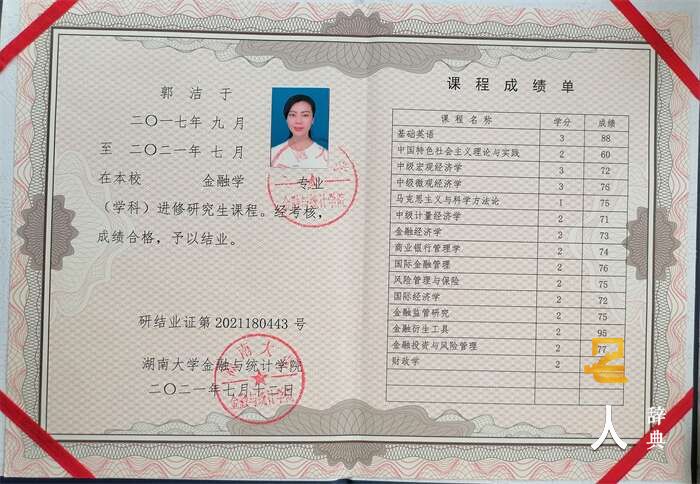 郭 洁 于
二〇一七年 九 月
至 二〇二一年 七 月
在本校 金融学 专业
（学科）进修研究生课程。经考核，
成绩合格，予以结业。
研结业证第 2021180443 号
湖南大学金融与统计学院
二〇二一年七月十二日
湖南大
金融与统计学院
金融与统计学院
课 程 成 绩 单
课 程 名 称 学分 成绩
基础英语 3 88
中国特色社会主义理论与实践 2 60
中级宏观经济学 3 72
中级微观经济学 3 76
马克思主义与科学方法论 1 75
中级计量经济学 2 71
金融经济学 2 73
商业银行管理学 2 74
国际金融管理 2 76
风险管理与保险 2 75
国际经济学 2 72
金融监管研究 2 75
金融衍生工具 2 95
金融投资与风险管理 2 77
财政学 2
人
辞典